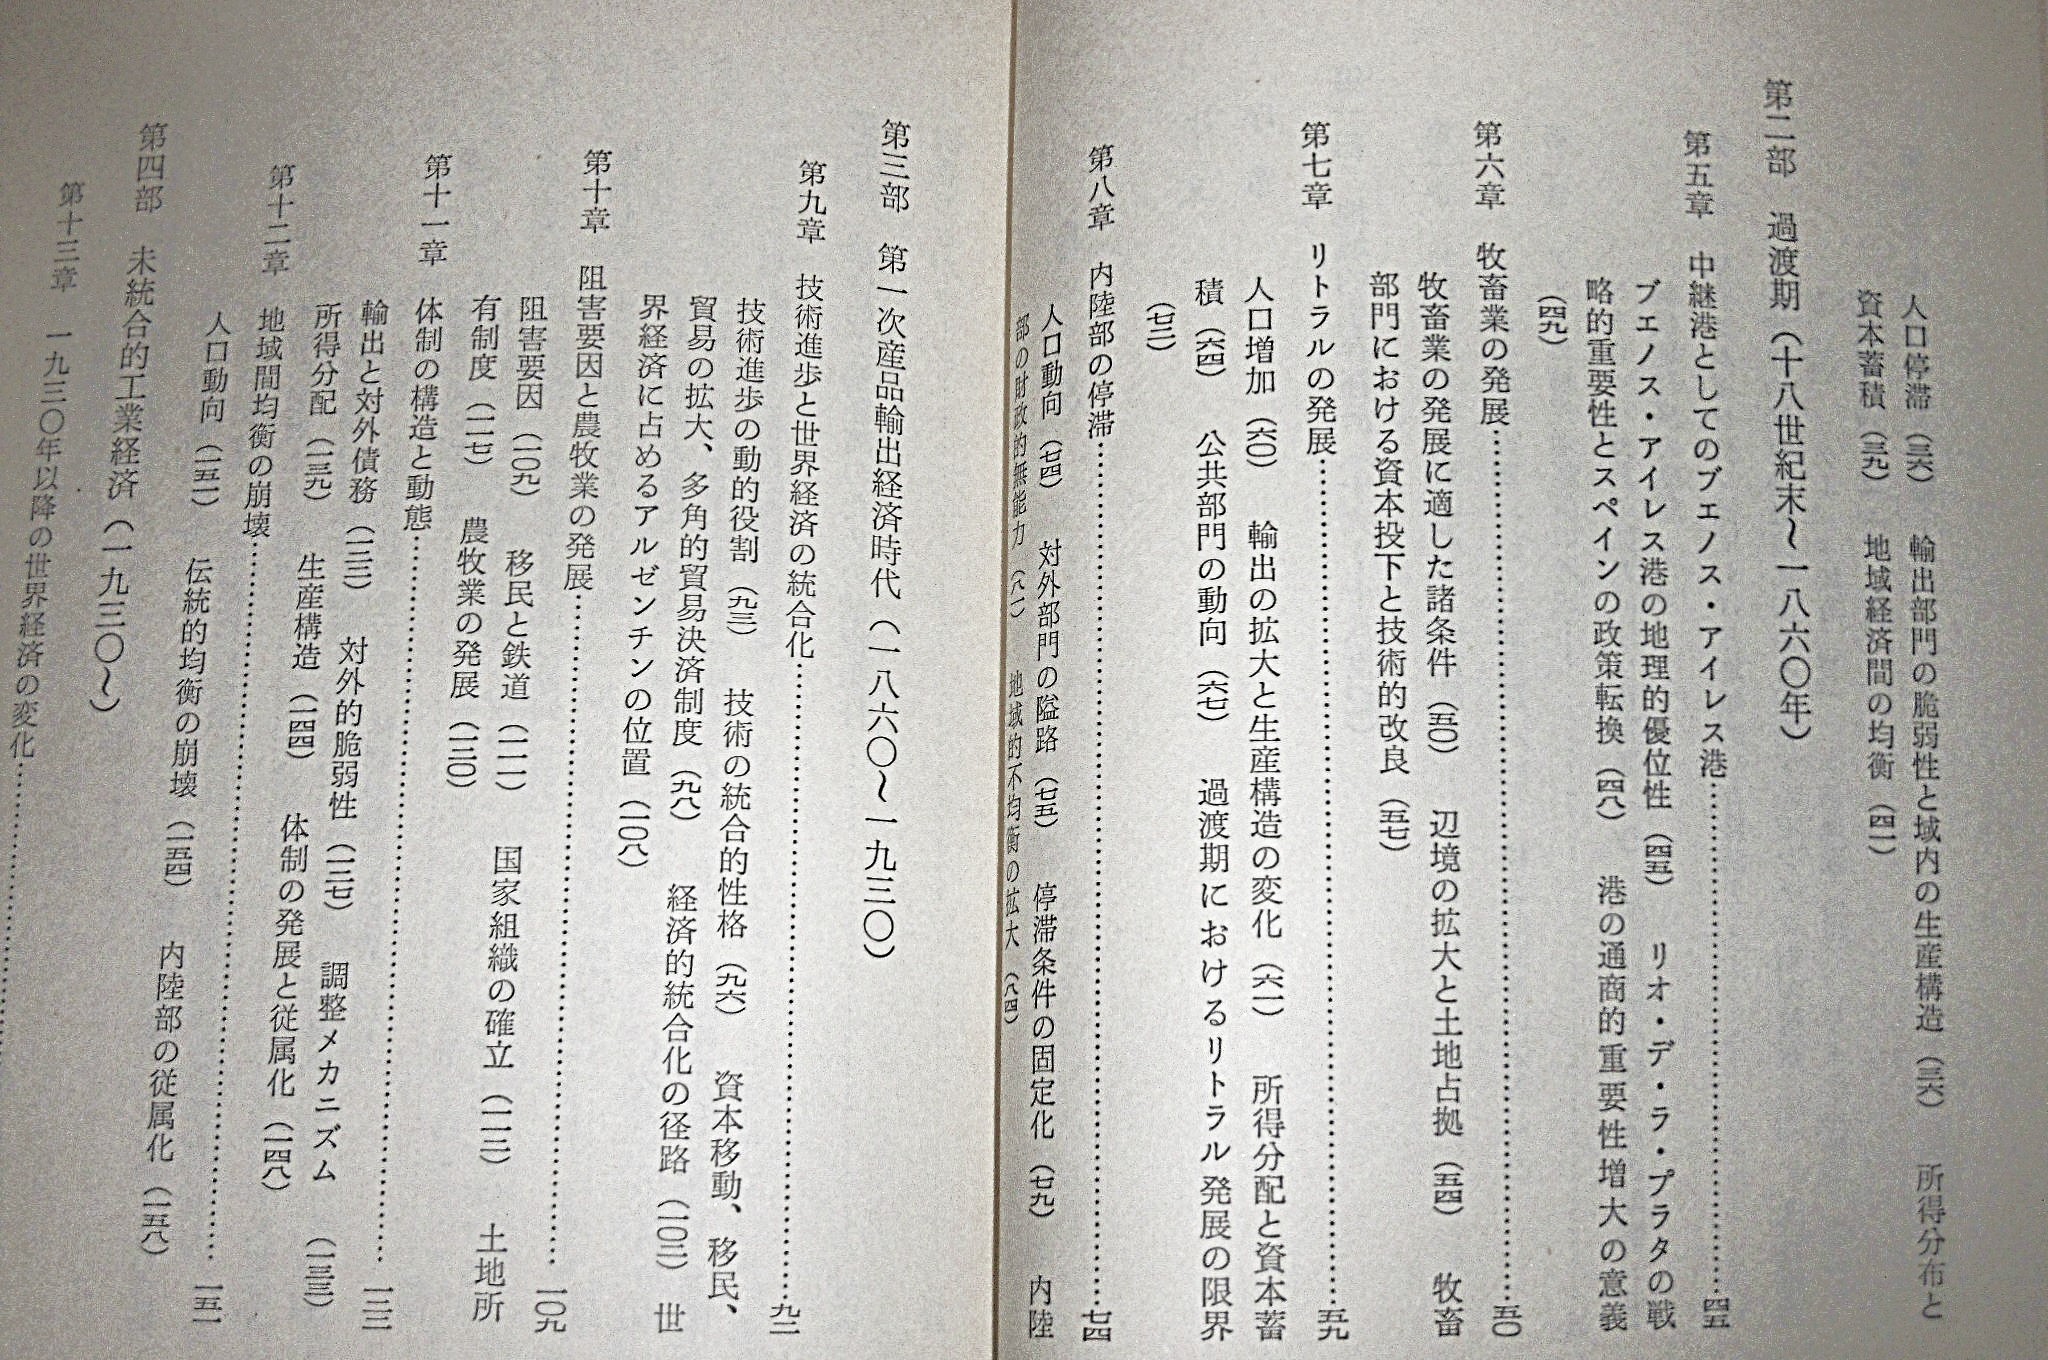 人口停滞（三六）　輸出部門の脆弱性と域内の生産構造（三六）　所得分布と
資本蓄積（三九）　地域経済間の均衡（四一）
第二部　過渡期（十八世紀末〜一八六〇年）
第五章　中継港としてのブェノス・アイレス港……四五
ブェノス・アイレス港の地理的優位性（四五）　リオ・デ・ラ・プラタの戦
略的重要性とスペインの政策転換（四八）　港の通商的重要性増大の意義
（四九）
第六章　牧畜業の発展……五〇
牧畜業の発展に適した諸条件（五〇）　辺境の拡大と土地占拠（五四）　牧畜
部門における資本投下と技術的改良（五七）
第七章　リトラルの発展……五九
人口増加（六〇）　輸出の拡大と生産構造の変化（六一）　所得分配と資本蓄
積（六四）　公共部門の動向（六七）　過渡期におけるリトラル発展の限界
（七二）
第八章　内陸部の停滞……七四
人口動向（七四）　対外部門の隘路（七五）　停滞条件の固定化（七九）　内陸
部の財政的無能力（八一）　地域的不均衡の拡大（八四）
第三部　第一次産品輸出経済時代（一八六〇〜一九三〇）
第九章　技術進歩と世界経済の統合化……九二
技術進歩の動的役割（九三）　技術の統合的性格（九六）　資本移動、移民、
貿易の拡大、多角的貿易決済制度（九八）　経済的統合化の径路（一〇二）　世
界経済に占めるアルゼンチンの位置（一〇八）
第十章　阻害要因と農牧業の発展……一〇九
阻害要因（一〇九）　移民と鉄道（一一一）　国家組織の確立（一一三）　土地所
有制度（一一七）　農牧業の発展（一二〇）
第十一章　体制の構造と動態……一二三
輸出と対外債務（一二三）　対外的脆弱性（一二七）　調整メカニズム（一三三）
所得分配（一三九）　生産構造（一四四）　体制の発展と従属化（一四八）
第十二章　地域間均衡の崩壊……一五一
人口動向（一五一）　伝統的均衡の崩壊（一五四）　内陸部の従属化（一五八）
第四部　未統合的工業経済（一九三〇〜）
第十三章　一九三〇年以降の世界経済の変化……